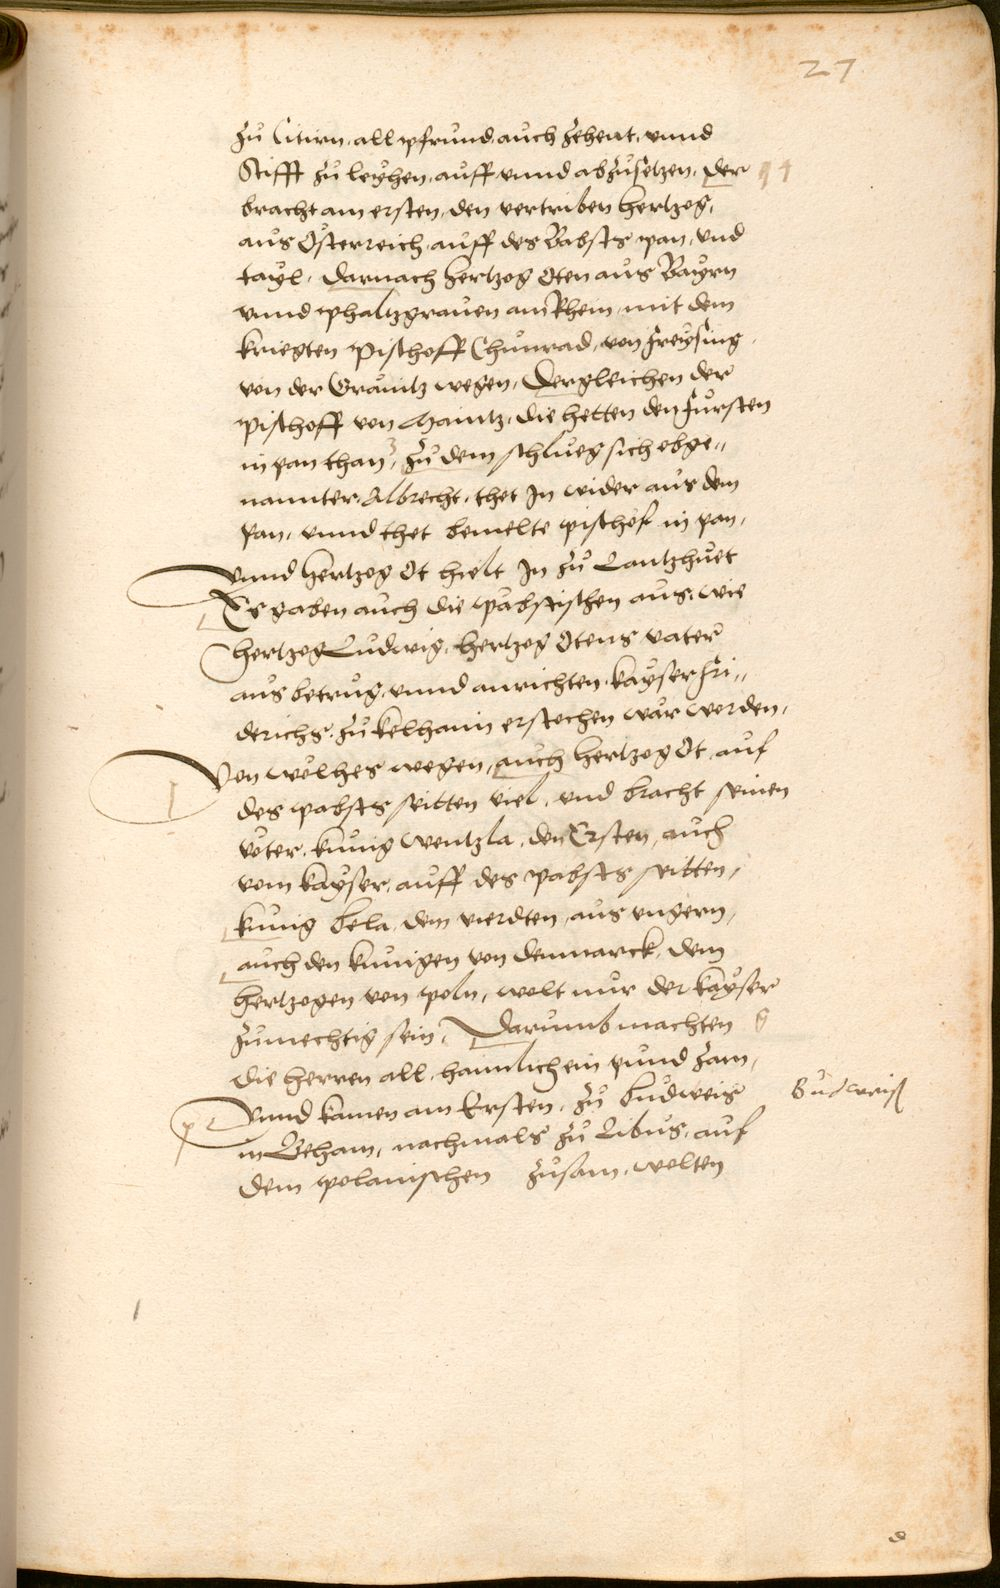 27
zu Citirn, all pfrund, auch Zehent, vnnd
Stifft zu leyhen, auff vnnd abzusetzen, der
bracht am ersten, den vertriben hertzog,
aus Österreich, auff des Babsts pan, vnd
tayl. Darnach hertzog Oten aus Bayrn
vnnd phaltzgrauen am Rhein, mit dem
kriegten Pischoff Chunrad, von Freysing,
von der Gränitz wegen, Dergleichen der
Pischoff von Maintz, die hetten den Fursten
in pan than, zu dem schlueg sich obge„
nannter, Albrecht, thet In wider aus dem
Pan, vnnd thet bemelte pischof in pan,
Vnnd hertzog Ot hielt In zu Lantzhuet
Es gaben auch die pabstischen aus, wie
hertzog Ludwig, hertzog Otens vater
aus betrug, vnnd anrichten, kayser Fri„
derichs, zu kelhaim erstochen war worden,
Von wölhes wegen, auch hertzog Ot, auf
des pabsts seitten viel, vnd bracht seinen
veter, kunig Wentzla, den Ersten, auch
vom kayser, auff des pabsts seitten,
kunig Bela, dem vierdten, aus vngern,
auch den kunigen von Denmarck, dem
hertzogen von poln, wolt nur der kayser
zumechtig sein, Darumb machten
die herren all, haimlich ein pund zam,
Vnnd kamen am Ersten, zu budweis
Budweiß
in Beham, nachmals zu Libus, auf
dem polanischen zusam, wolten